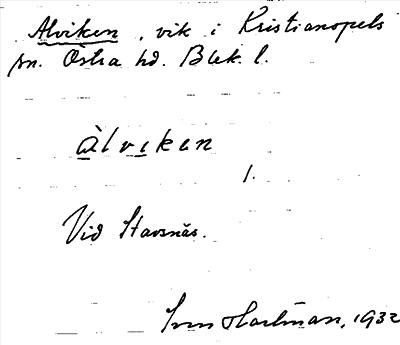 Alviken, vik i Kristianopels
sn. Östra hd. Blek. l.
àlviken
1.
Vid Stavsnäs.
Sven Hartman, 1932